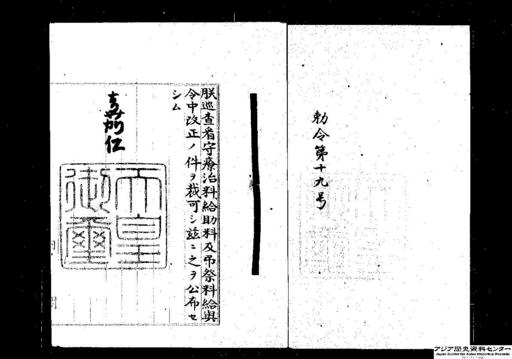 勅令第十九号
朕巡査看守療治料給助料及弔祭料給與
令中改正ノ件ヲ裁可シ茲ニ之ヲ公布セ
シム
嘉仁
天皇
御璽
アジア歴史資料センター
Japan Center for Asian Historical Records